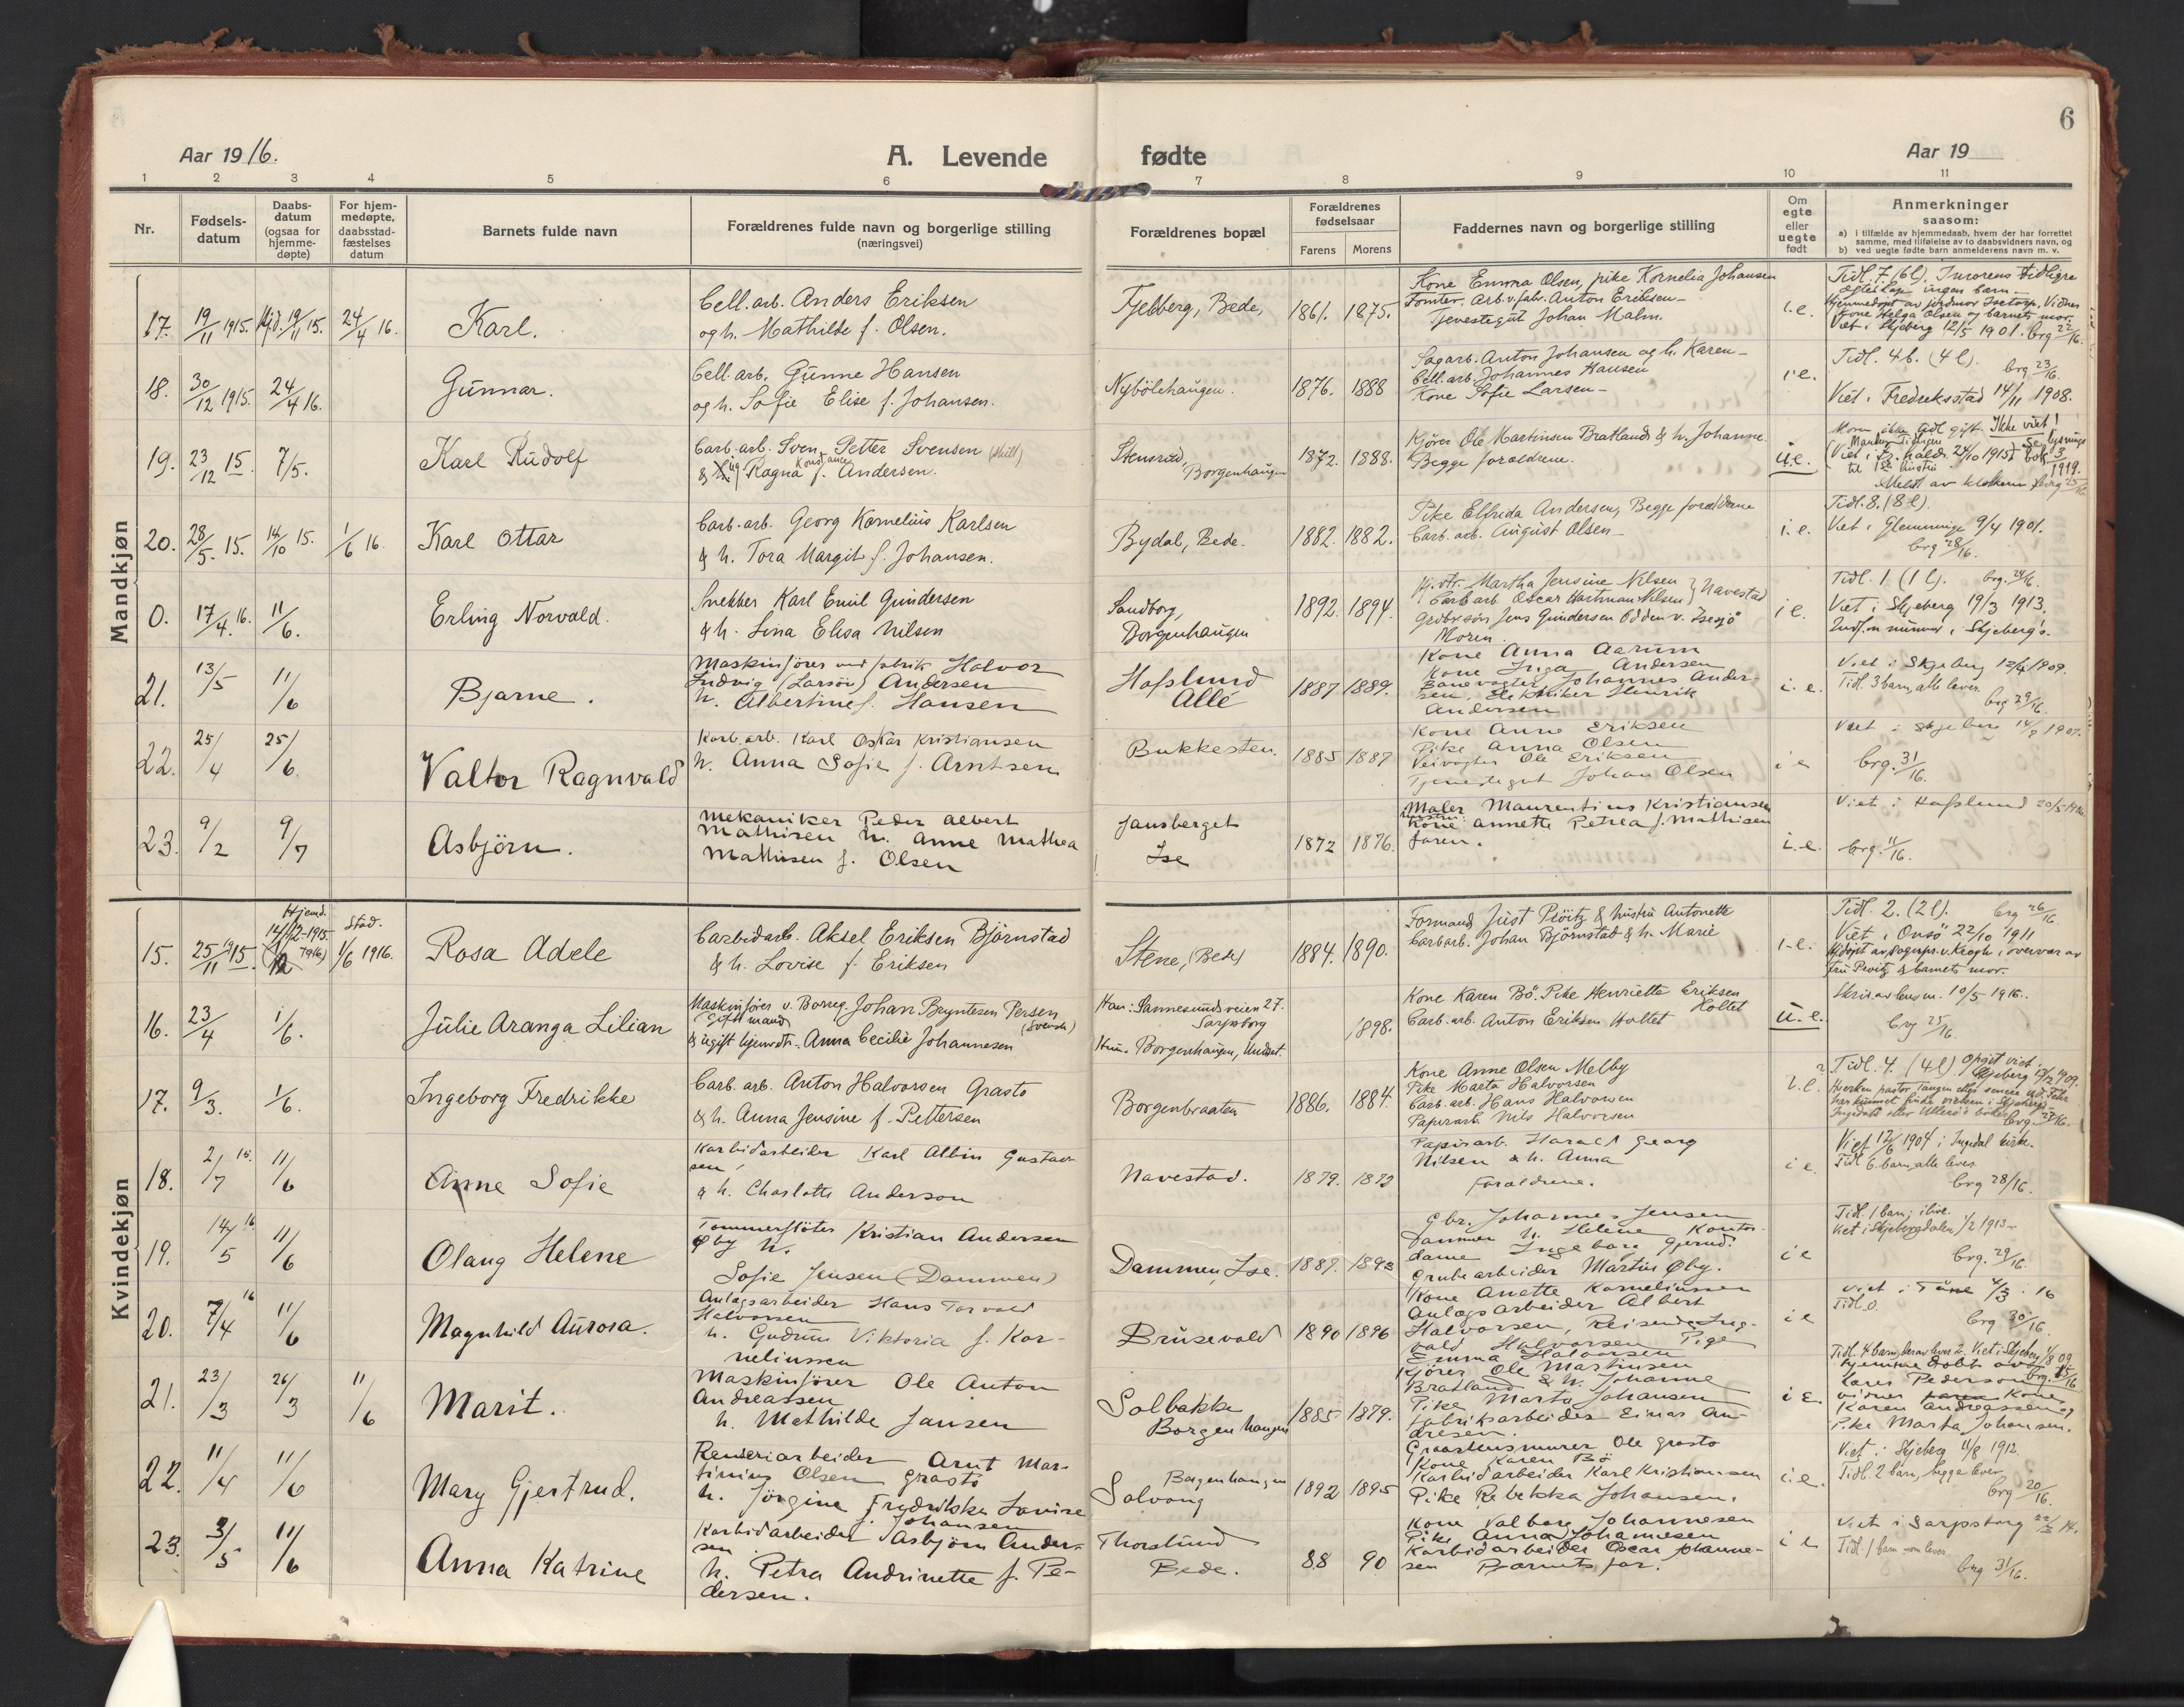 6
Aar 1916.
A. Levende fødte
Aar 19
1 2 3 4 5 6 7 8 9 10 11
Nr.
Fødsels-
datum
Daabs-
datum
(ogsaa for
hjemme-
døpte)
For hjem-
medøpte,
daabsstad-
fæstelses
datum
Barnets fulde navn
Forældrenes fulde navn og borgerlige stilling
(næringsvei)
Forældrenes bopæl
Forældrenes
fødselsaar
Farens Morens
Faddernes navn og borgerlige stilling
Om
egte
eller
uegte
født
Anmerkninger
saasom:
a) i tilfælde av hjemmedaab, hvem der har forrettet
samme, med tilføielse av to daabsvidners navn, og
b) ved uegte fødte barn anmelderens navn m. v.
Mandkjøn
17. 19/11 1915. Hjd. 19/11 15. 24/4 16.
Karl.
Cell. arb. Anders Eriksen
og h. Mathilde f. Olsen.
Fjeldberg, Bede,
1861. 1875.
Kone Emma Olsen, pike Kornelia Johansen
Arb. v. fabr. Anton Eriksen
Tjenestegut Johan Malm.
i.e.
Tidl. 7 (6 l).
ingen barn
Viet i Skjeberg 12/5 1901. brg 22/16.
18. 30/12 1915. 24/4 16.
Gunnar.
Cell. arb. Gunne Hansen
og h. Sofie Elise f. Johansen.
Nybölehaugen.
1876. 1888
Sagarb. Anton Johansen og h. Karen
Cell. arb. Johannes Hansen
Kone Sofie Larsen
i.e.
Tidl. 4 b. (4 l). brg 23/16.
Viet i Fredriksstad 14/11 1908.
19. 23/12 15. 7/5.
Karl Rudolf
Carb. arb. Sven Petter Svensen
& Ragna Konstance f. Andersen.
Stensrud, Borgenhaugen
1872. 1888.
Kjører Ole Martinsen Bratland & h. Johanne
Begge forældrene.
u.e.
Ikke viet!
1919.
20. 28/5 15. 14/10 15. 1/6 16.
Karl Ottar
Carb. arb. Georg Kornelius Karlsen
& h. Tora Margit f. Johansen.
Bydal, Bede.
1882. 1882.
Pike Elfrida Andersen, Begge forældrene
Carb. arb. August Olsen
i.e.
Tidl. 8. (8 l)
Viet i Glemminge 9/4 1901.
brg 28/16.
0. 17/4 16. 11/6.
Erling Norvald.
Snekker Karl Emil Gundersen
& h. Lina Elisa Nilsen
Sandborg,
Borgenhaugen
1892. 1894.
Martha Jensine Nilsen
Carb. arb. Oscar Hartman Nilsen } Navestad
Gudbr. søn Jens Gundersen Odden v. Isesjø
Moren.
i e.
Tidl. 1. (1 l). brg. 24/16.
Viet i Skjeberg 19/3 1913.
21. 13/5 11/6
Bjarne.
Maskinfører ved fabrik Halvor
Ludvig (Larsön) Andersen
h. Albertine f. Hansen
Hafslund
Allé
1887 1889.
Kone Anna Aarum
Kone Inga Andersen
Banevogter Johannes Ander-
sen, Elektriker Henrik
Andersen
i. e.
Viet i Skjeberg 12/4 1909.
Tidl. 3 barn, alle lever.
brg 29/16.
22. 25/4 25/6
Valtor Ragnvald
Karb. arb. Karl Oskar Kristiansen
h. Anna Sofie f. Arntsen
Bukkesten.
1885 1887
Kone Anne Eriksen
Pike Anna Olsen
Veivogter Ole Eriksen
Tjenestegut Johan Olsen
i e
brg. 31/16.
23. 9/2 9/7
Asbjörn.
Mekaniker Peder Albert
Mathisen h. Anne Mathea
Mathisen f. Olsen
Jansberget
Ise
1872 1876
Maler Maurentius Kristiansen
Kone Annette Petrea f. Mathisen
faren.
i.e.
Viet i Hafslund
brg. 11/16.
Kvindekjøn
15. 25/11 1915. Hjemd. Stad. 1/6 1916.
Rosa Adele
Carbidarb. Aksel Eriksen Björnstad
& h. Lovise f. Eriksen
Stene, (Bede)
1884. 1890.
Formand Just Pröitz & hustru Antonette
Carbarb. Johan Björnstad & h. Marie
i.e.
Tidl. 2. (2 l). brg 26/16.
Viet i Onsö 22/10 1911
Hjdöpt av sognepr. v. Krogh i overvær av
fru Pröitz & barnets mor.
16. 23/4 1/6.
Julie Aranga Lilian
Maskinfører v. Borreg. Johan Bryntesen Persen
Gift mand (Svensk)
& ugift hjemdtr. Anna Cecilie Johannesen
Han: Sannesundsveien 27.
Sarpsborg
Hun: Borgenhaugen,
1898.
Kone Karen Bö. Pike Henriette Eriksen
Holtet
Carb. arb. Anton Eriksen Holtet
u.e.
10/5 1916.
brg 25/16.
17. 9/3. 1/6.
Ingeborg Fredrikke
Carb. arb. Anton Halvorsen Grasto
& h. Anna Jensine f. Pettersen
Borgenbraaten
1886. 1884.
Kone Anne Olsen Melby
Pike Marta Halvorsen
Carb. arb. Hans Halvorsen
Papirarb. Nils Halvorsen
Tidl. 4. (4 l)
brg. 27/16.
18. 2/7 15. 11/6
Anne Sofie
Karbidarbeider Karl Albin Gustav-
sen,
& h. Charlotte Anderson
Navestad.
1879. 1873
Papirarb. Harald Georg
Nilsen & h. Anna
Forældrene.
i e.
Viet 12/6 1904 i Ingedal kirke.
Tidl 6 barn, alle lever.
brg 28/16.
19. 14/5 16 11/6
Olaug Helene
Tømmerfløter Kristian Andersen
Øby h.
Sofie Jensen (Dammen)
Dammen, Ise.
1887. 1893
Gbr. Johannes Jensen
Dammen h. Helene Kontor-
dame Ingeborg
Grubearbeider Martin Øby.
i e
Tidl. 1 barn, ilive.
Viet i Skjebergdalen 1/2 1913
brg. 29/16.
20. 7/4 16 11/6
Magnhild Aurora.
Anlægsarbeider Hans Torvald
Halvorsen
h. Gudrun Viktoria f. Kor-
neliussen
Brusevold
1890 1896
Kone Anette Korneliussen
Anlægsarbeider Albert
Halvorsen, Reisende Ing-
vald Halvorsen Pige
Emma Halvorsen
i e
Viet i Tune 4/3. 16
Tidl. 0.
brg 30/16.
21. 23/3 26/3 11/6
Marit.
Maskinfører Ole Anton
Andreassen
h. Mathilde Jansen
Solbakke
Borgenhaugen
1885 1879.
Kjører Ole Martinsen
Bratland & h. Johanne
Pike Marta Johansen
Fabrikarbeider Einar An-
dresen.
i e.
Kone
Karen Andreassen og
Pike Marta Johansen.
22. 11/4 11/6
Mary Gjertrud.
Renseriarbeider Arnt Mar-
tinius Olsen Grasto
h. Jörgine Fredrikke Lovise
f. Johansen
Borgenhaugen
Solvang
1892 1895
Graastensmurer Ole Grasto
Kone Karen Bö
Karbidarbeider Karl Kristiansen
Pike Rebekka Johansen.
i.e.
Viet i Skjeberg 11/8 1912.
Tidl. 2 barn, begge lever
brg 20/16.
23. 3/5 11/6
Anna Katrine
Karbidarbeider Asbjörn Ander-
sen
h. Petra Andrinette f. Pe-
dersen.
Thorslund
Bede.
88 90
Kone Valborg Johannesen
Pike Anna Johannesen
Karbidarbeider Oscar Johanne-
sen Barnets far.
i e
Viet i Sarpsborg 22/3 14.
Tidl. 1 barn som lever.
brg 31/16.